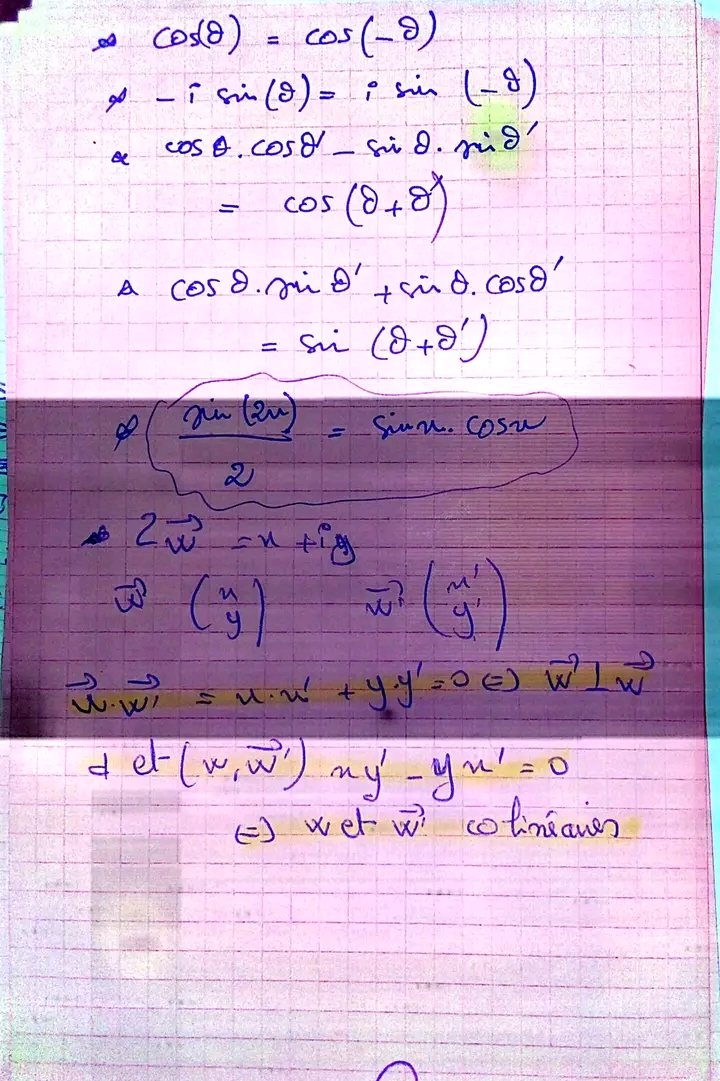 cos(θ) = cos(-θ)
- i sin(θ) = i sin (-θ)
cos θ. cos θ' - sin θ. sin θ'
= cos (θ + θ')
cos θ. sin θ' + sin θ. cos θ'
= sin (θ + θ')
sin (2x) / 2 = sin x. cos x
Z w⃗ = x + iy
w⃗ (x y) w⃗' (x' y')
w⃗. w⃗' = x. x' + y. y' = 0 ⇔ w⃗' ⊥ w⃗
det (w, w⃗') xy' - yx' = 0
⇔ w et w⃗' colinéaires